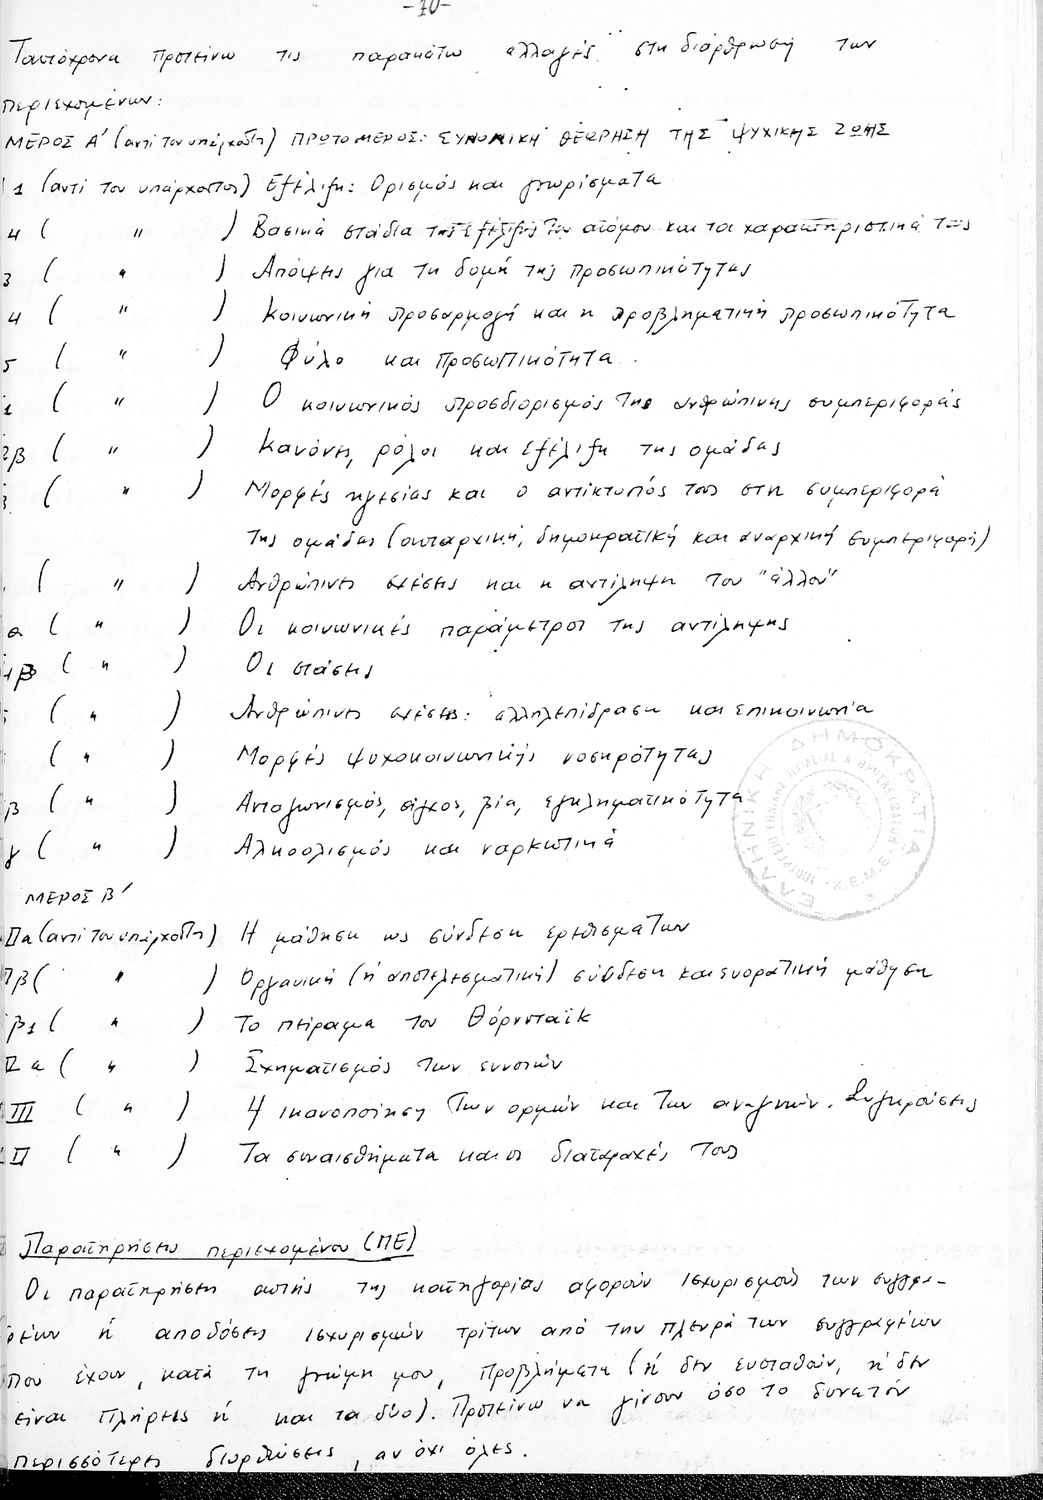 -70-
Ταυτόχρονα προτείνω τις παρακάτω αλλαγές στη διάρθρωση των
περιεχομένων:
ΜΕΡΟΣ Α' (αντί του υπάρχοντος) ΠΡΩΤΟ ΜΕΡΟΣ: ΣΥΝΟΛΙΚΗ ΘΕΩΡΗΣΗ ΤΗΣ ΨΥΧΙΚΗΣ ΖΩΗΣ
1 (αντί του υπάρχοντος) Εξέλιξη: Ορισμός και γνωρίσματα
4 ( " ) Βασικά στάδια της εξέλιξης του ατόμου και τα χαρακτηριστικά τους
3 ( " ) Απόψεις για τη δομή της προσωπικότητας
4 ( " ) Κοινωνική προσαρμογή και η προβληματική προσωπικότητα
5 ( " ) Φύλο και προσωπικότητα.
1 ( " ) Ο κοινωνικός προσδιορισμός της ανθρώπινης συμπεριφοράς
2β ( " ) Κανόνες, ρόλοι και εξέλιξη της ομάδας
3 ( " ) Μορφές ηγεσίας και ο αντίκτυπός τους στη συμπεριφορά
της ομάδας (αυταρχική, δημοκρατική και αναρχική συμπεριφορά)
( " ) Ανθρώπινες σχέσεις και η αντίληψη του "άλλου"
α ( " ) Οι κοινωνικές παράμετροι της αντίληψης
β ( " ) Οι στάσεις
( " ) Ανθρώπινες σχέσεις: αλληλεπίδραση και επικοινωνία
( " ) Μορφές ψυχοκοινωνικής νοσηρότητας
β ( " ) Ανταγωνισμός, άγχος, βία, εγκληματικότητα
γ ( " ) Αλκοολισμός και ναρκωτικά
ΕΛΛΗΝΙΚΗ ΔΗΜΟΚΡΑΤΙΑ
Κ.Ε.Μ.Ε.
ΜΕΡΟΣ Β'
IIα (αντί του υπάρχοντος) Η μάθηση ως σύνδεση ερεθισμάτων
β ( " ) Οργανική (ή αποτελεσματική) σύνδεση και ενορατική μάθηση
β1 ( " ) Το πείραμα του Θόρνταϊκ
α ( " ) Σχηματισμός των εννοιών
III ( " ) Η ικανοποίηση των ορμών και των αναγκών. Συγκρούσεις
II ( " ) Τα συναισθήματα και οι διαταραχές τους
Παρατηρήσεις περιεχομένου (ΠΕ)
Οι παρατηρήσεις αυτής της κατηγορίας αφορούν ισχυρισμούς των συγγρα-
φέων ή αποδόσεις ισχυρισμών τρίτων από την πλευρά των συγγραφέων
που έχουν, κατά τη γνώμη μου, προβλήματα (ή δεν ευσταθούν, ή δεν
είναι πλήρεις ή και τα δύο). Προτείνω να γίνουν όσο το δυνατόν
περισσότερες διορθώσεις, αν όχι όλες.